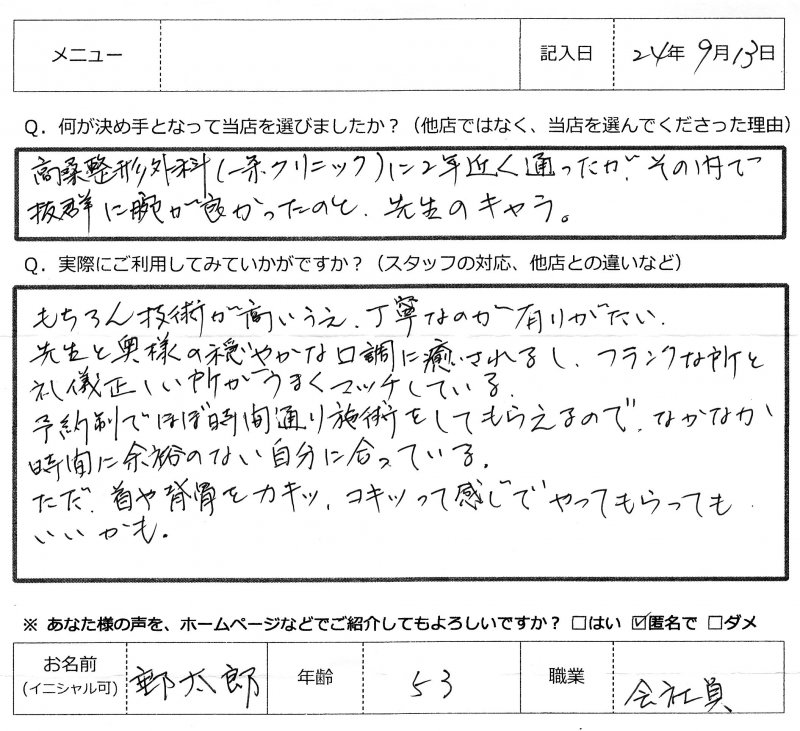 メニュー 記入日 24年9月13日
Q．何が決め手となって当店を選びましたか？（他店ではなく、当店を選んでくださった理由）
高桑整形外科(一条クリニック)に2年近く通ったが、その内で
抜群に腕が良かったのと、先生のキャラ。
Q．実際にご利用してみていかがですか？（スタッフの対応、他店との違いなど）
もちろん技術が高いうえ、丁寧なのが有りがたい。
先生と奥様の穏やかな口調に癒されるし、フランクな所と
礼儀正しい所がうまくマッチしている。
予約制でほぼ時間通り施術をしてもらえるので、なかなか
時間に余裕のない自分に合っている。
ただ、首や背骨をカキッ、コキッって感じでやってもらっても
いいかも。
※ あなた様の声を、ホームページなどでご紹介してもよろしいですか？ □はい ☑匿名で □ダメ
お名前 太郎 年齢 53 職業 会社員
(イニシャル可)